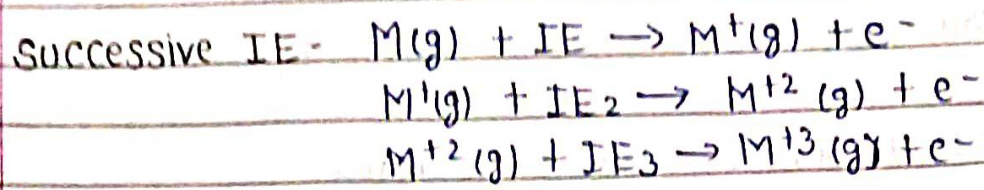 Successive IE - M(g) + IE → M⁺(g) + e⁻
M⁺(g) + IE₂ → M⁺² (g) + e⁻
M⁺² (g) + IE₃ → M⁺³ (g) + e⁻